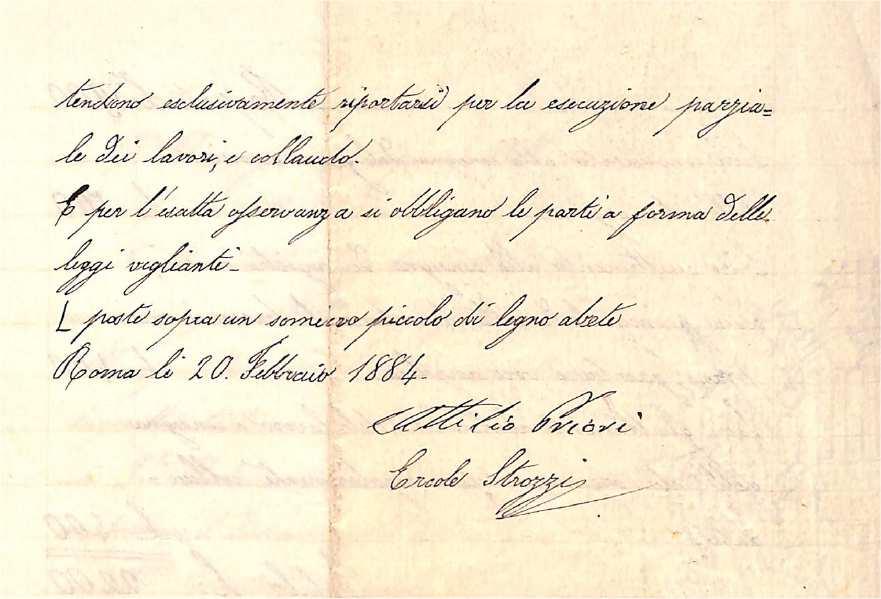 tendono esclusivamente riportarsi per la esecuzione parzia=
le dei lavori, e collaudo.
E per l'esatta osservanza si obbligano le parti a forma delle
leggi veglianti.
L poste sopra un somiero piccolo di legno abete
Roma li 20. Febbraio 1884.
Attilio Priori
Ercole Strozzi